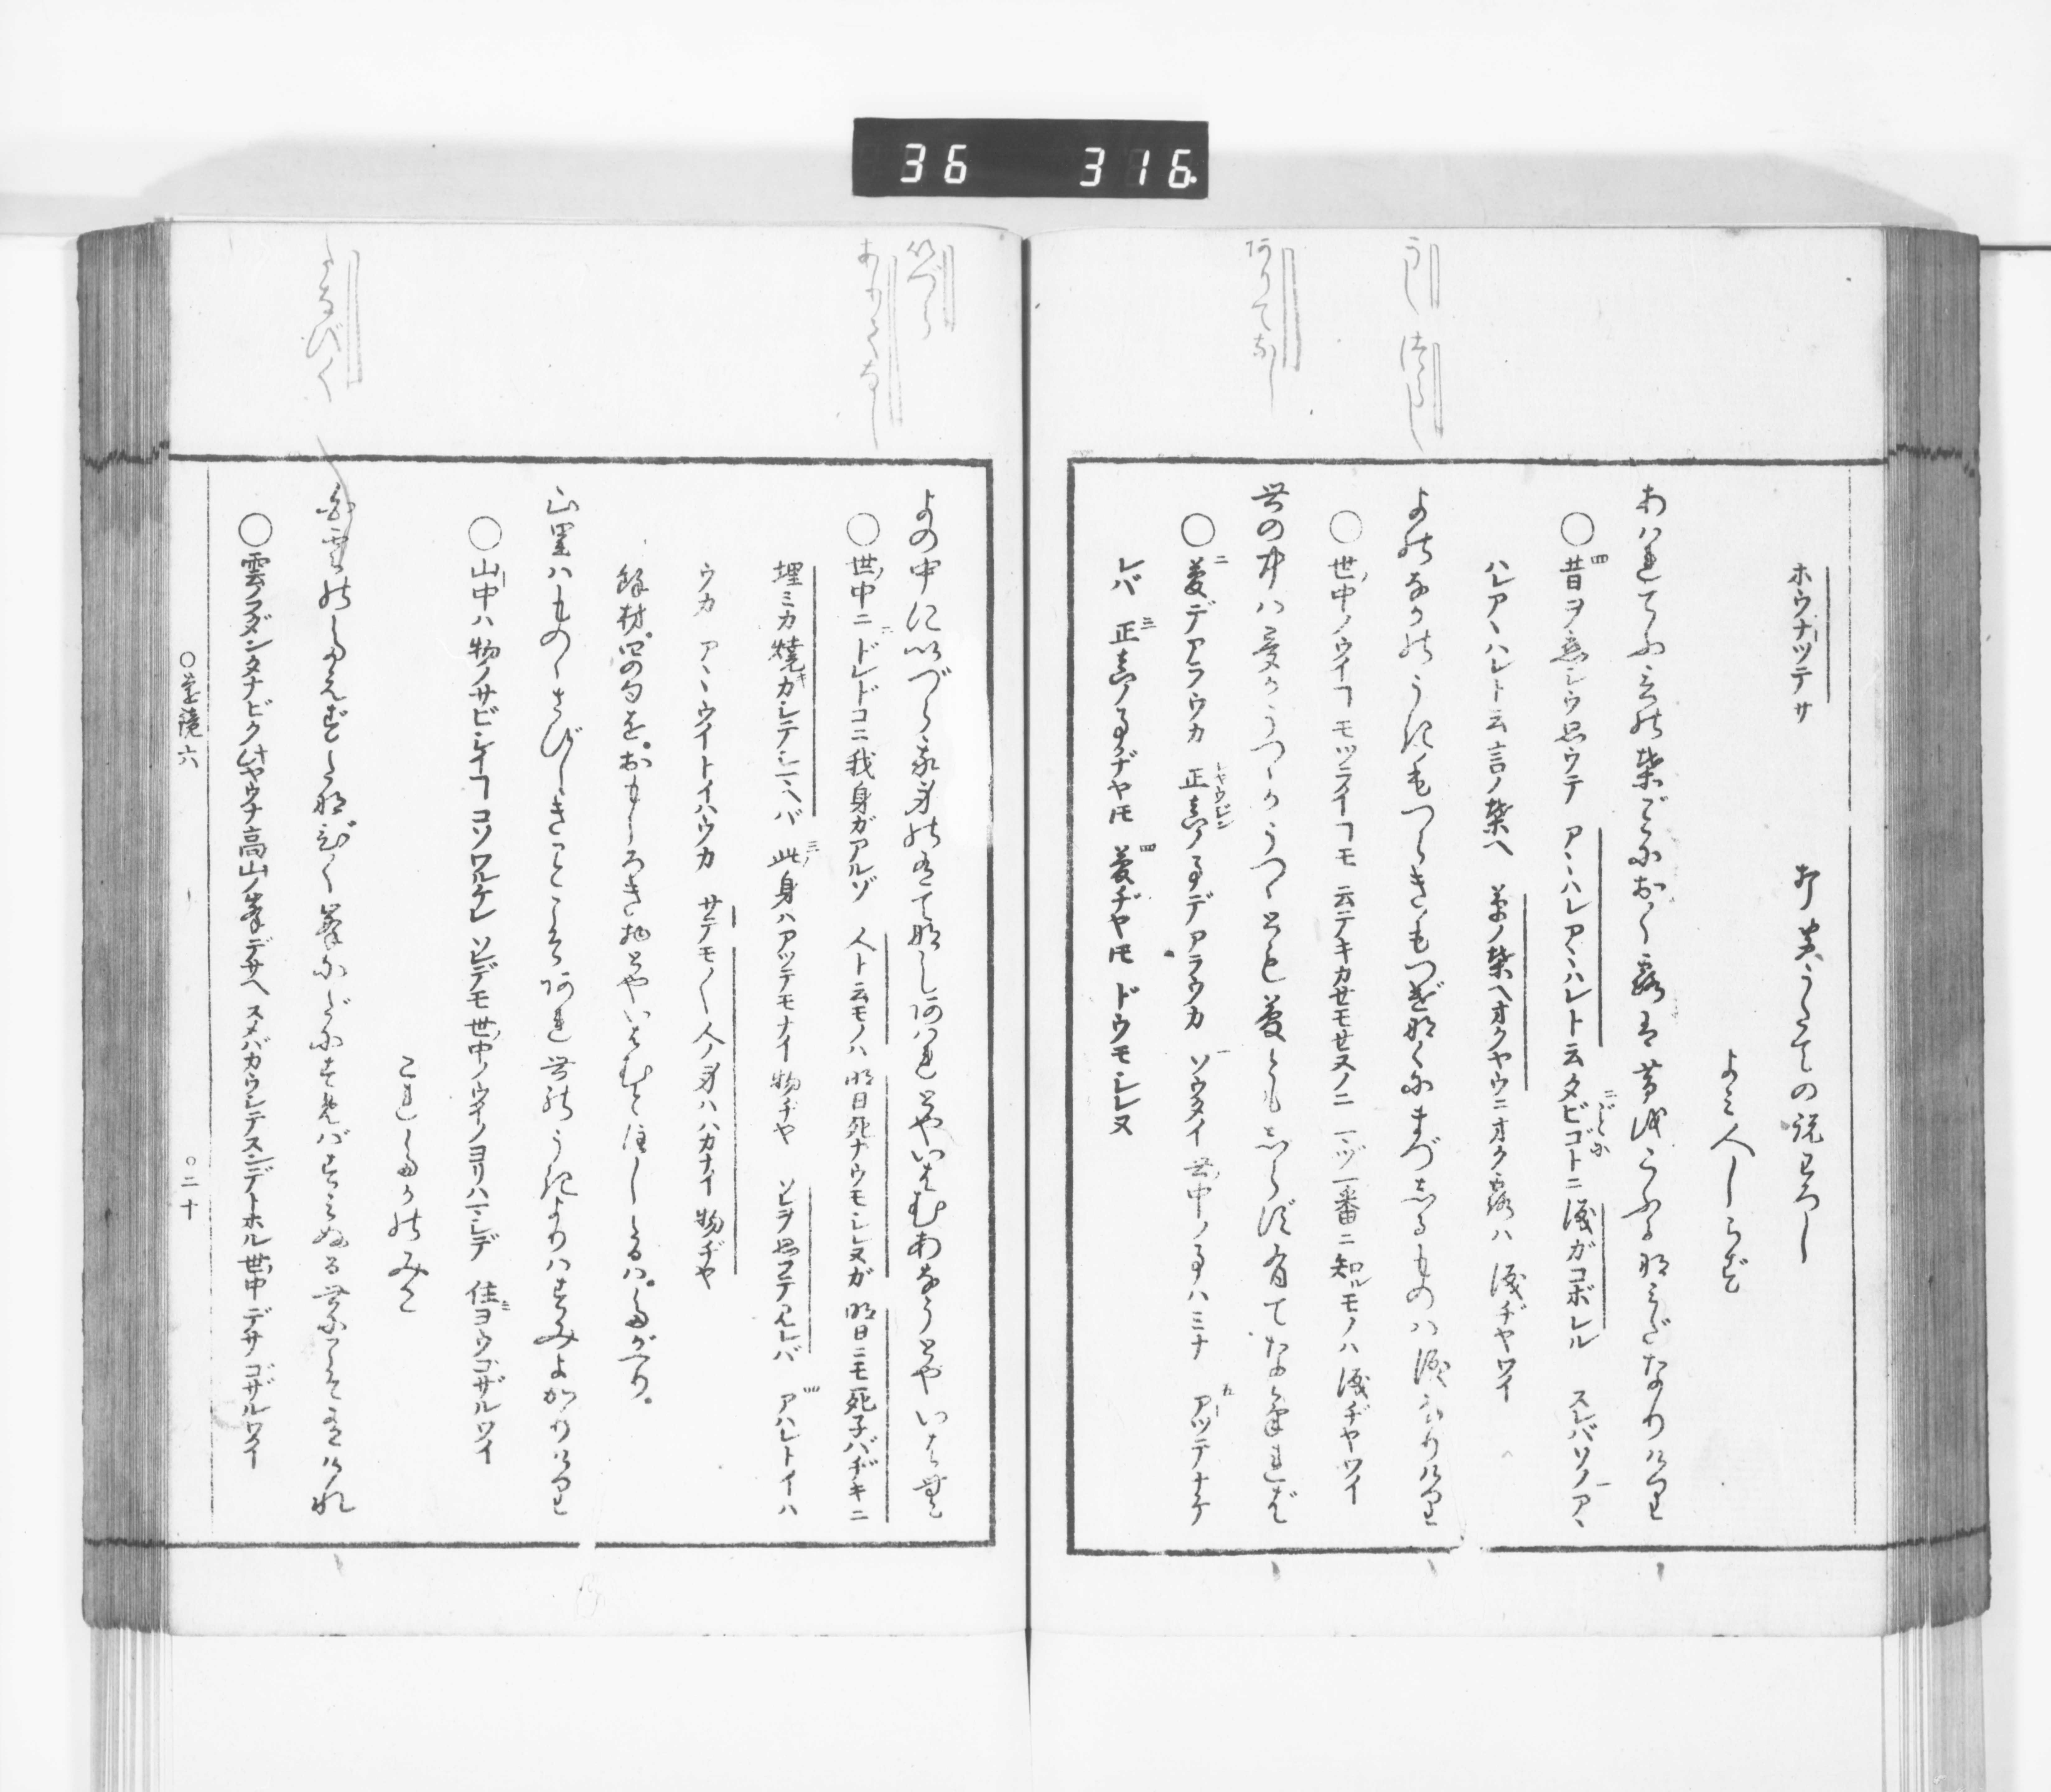 36 316
うし つらし
ありてなし
ホウナツテサ
打聞うたての説わろし
よみ人しらず
あはれてふことの葉ごとにおく露は昔をこふるなみだなりけり
○昔ヲ恋シウ思ウテ アヽハレアヽハレト云タビゴトニ涙ガコボレル スレバソノアヽ
ハレアヽハレト云言ノ葉ヘ 草ノ葉ヘオクヤウニオク露ハ 涙ヂヤワイ
よのなかのうきもつらきもつげなくにまづしるものは涙なりけり
○世中ノウイコモツライコモ 云テキカサモセヌノニ 一ヅ一番ニ知ルモノハ涙ヂヤワイ
世の中は夢かうつゝかうつゝとも夢ともしらず有てなければ
○夢デアラウカ 正真ノ事デアラウカ ソウタイ世中ノ事ハミナ アツテナケ
レバ 正真ノ事ヂヤヤモ 夢ヂヤヤモ ドウモシレヌ
いづら
ありてなし
たなびく
よの中にいづら我身の有てなしあはれとやいはむあなうとやいはむ
○世中ニドレドコニ我身ガアルゾ 人ト云モノハ明日死ナウモシレヌガ 明日ニモ死子バヂキニ
埋ミカ焼カシテシマヘバ 此身ハアツテモナイ物ヂヤ ソレヲ思フテミレバ アハレトイハ
ウカ アヽウイトイハウカ サテモ〳〵人ノ身ハハカナイ物ヂヤ
餘材。四の句を。おもしろき物とやいはむと注したるは。たがへり。
山里はものゝさびしきことこそあれ世のうきよりはすみよかりけり
○山中ハ物ノサビシイココソワルケレ ソレデモ世中ノウイノヨリハマシデ 住ヨウゴザルワイ
これたかのみこ
白雲のたえずたなびく峯にだにすめばすみぬる世にこそ有けれ
○雲ノフダンタナビクヤウナ高山ノ峯デサヘ スメバカウシテスンデトホル世中デサ ゴザルワイ
○遠鏡六
○二十